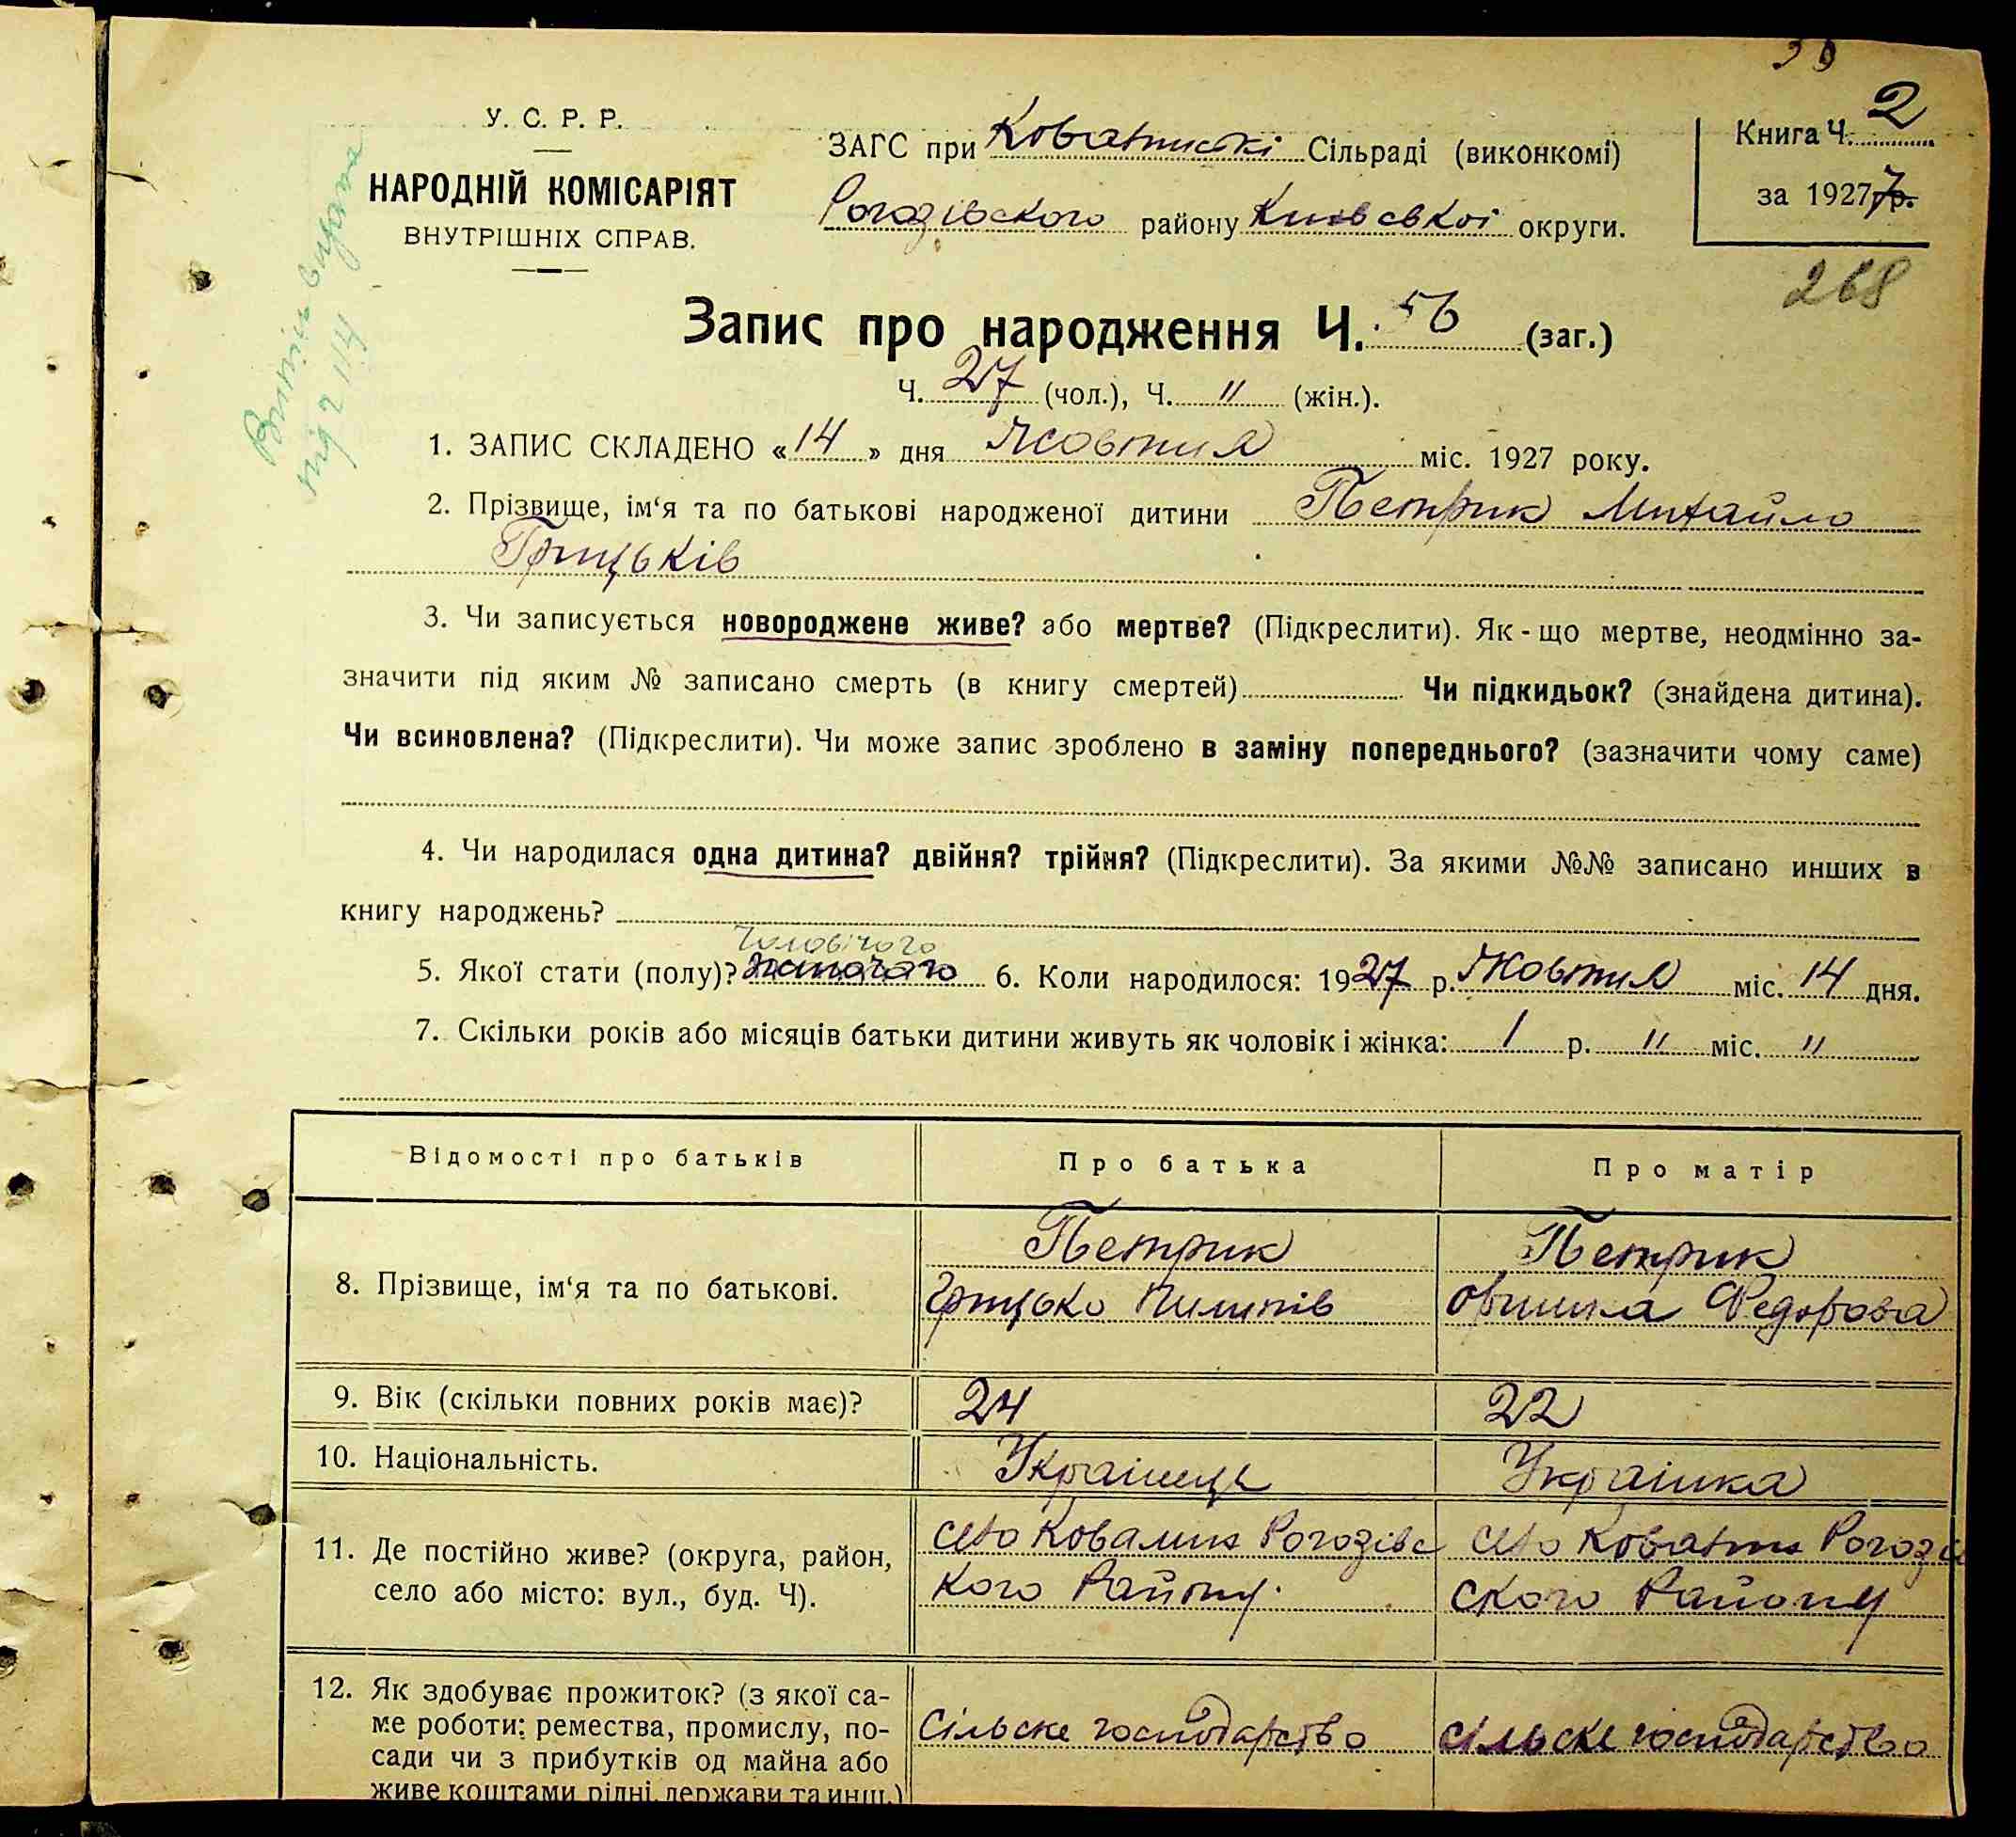 39
У. С. Р. Р.
НАРОДНІЙ КОМІСАРІЯТ
ВНУТРІШНІХ СПРАВ.
ЗАГС при Ковалинскі Сільраді (виконкомі)
Рогозівського району Київської округи.
Книга Ч. 2
за 1927 р.
268
Витяг видана
під 2114
Запис про народження Ч. 56 (заг.)
Ч. 27 (чол.), Ч. " (жін.).
1. ЗАПИС СКЛАДЕНО «14» дня Жовтня міс. 1927 року.
2. Прізвище, ім‘я та по батькові народженої дитини Петрик Михайло
Грицьків
3. Чи записується новороджене живе? або мертве? (Підкреслити). Як-що мертве, неодмінно за-
значити під яким № записано смерть (в книгу смертей) Чи підкидьок? (знайдена дитина).
Чи всиновлена? (Підкреслити). Чи може запис зроблено в заміну попереднього? (зазначити чому саме)
4. Чи народилася одна дитина? двійня? трійня? (Підкреслити). За якими №№ записано инших в
книгу народжень?
Чоловічого
5. Якої стати (полу)? 6. Коли народилося: 1927 р. Жовтня міс. 14 дня.
7. Скільки років або місяців батьки дитини живуть як чоловік і жінка: 1 р. " міс. "
Відомості про батьків Про батька Про матір
8. Прізвище, ім‘я та по батькові.
Петрик
Грицько Пилипів
Петрик
Оришка Федорова
9. Вік (скільки повних років має)? 24 22
10. Національність. Українець Українка
11. Де постійно живе? (округа, район,
село або місто: вул., буд. Ч).
село Ковалин Рогозівс
кого Району.
село Ковалин Рогозів
ского Району
12. Як здобуває прожиток? (з якої са-
ме роботи: ремества, промислу, по-
сади чи з прибутків од майна або
живе коштами рідні, держави та инш.)
Сільске господарство
Сільске господарство